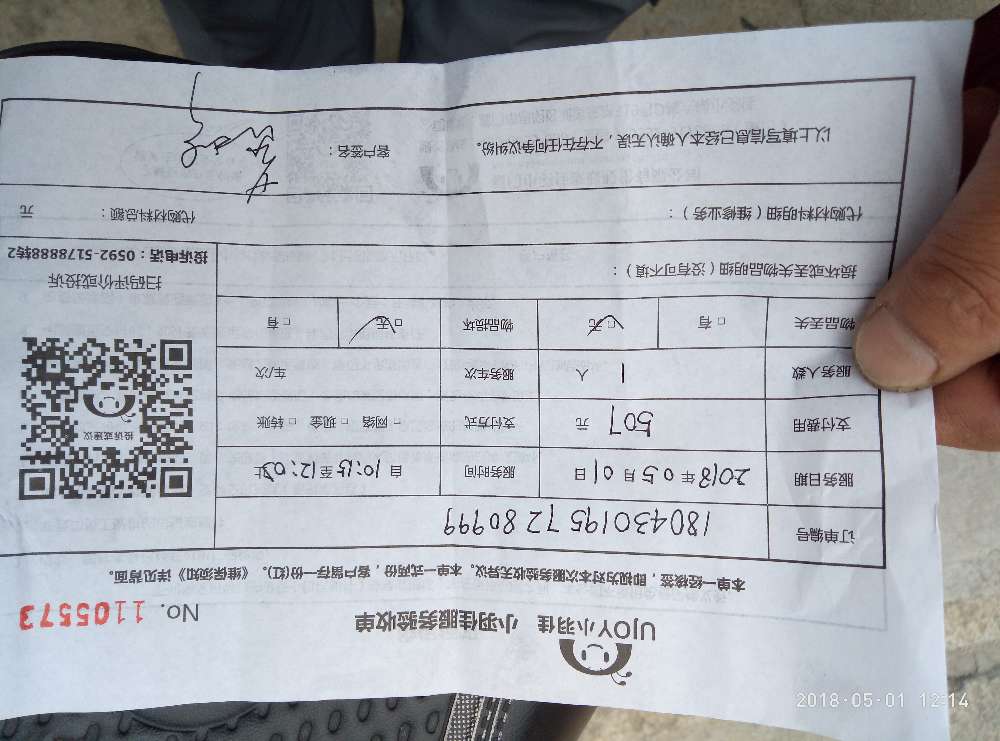 UJOY小羽佳 小羽佳服务验收单 No. 1105573
本单一经核签，即视为对本次服务验收无异议。本单一式两份，客户留存一份(红)。《维保须知》详见背面。
订单编号 18043019572 80999
服务日期 2018年05月01日 服务时间 自10:15至12:02止
支付费用 507 元 支付方式 □网络 □现金 □转账
服务人数 1 人 服务车次 车/次
物品丢失 □有 □无 物品损坏 □有 □无
投诉或建议
扫码评价或投诉
投诉电话：0592-5178888转2
损坏或丢失物品明细（没有可不填）：
代购材料明细（维修业务）： 代购材料总额： 元
以上填写信息已经本人确认无误，不存在任何争议纠纷。 客户签名：
2018-05-01 12:14